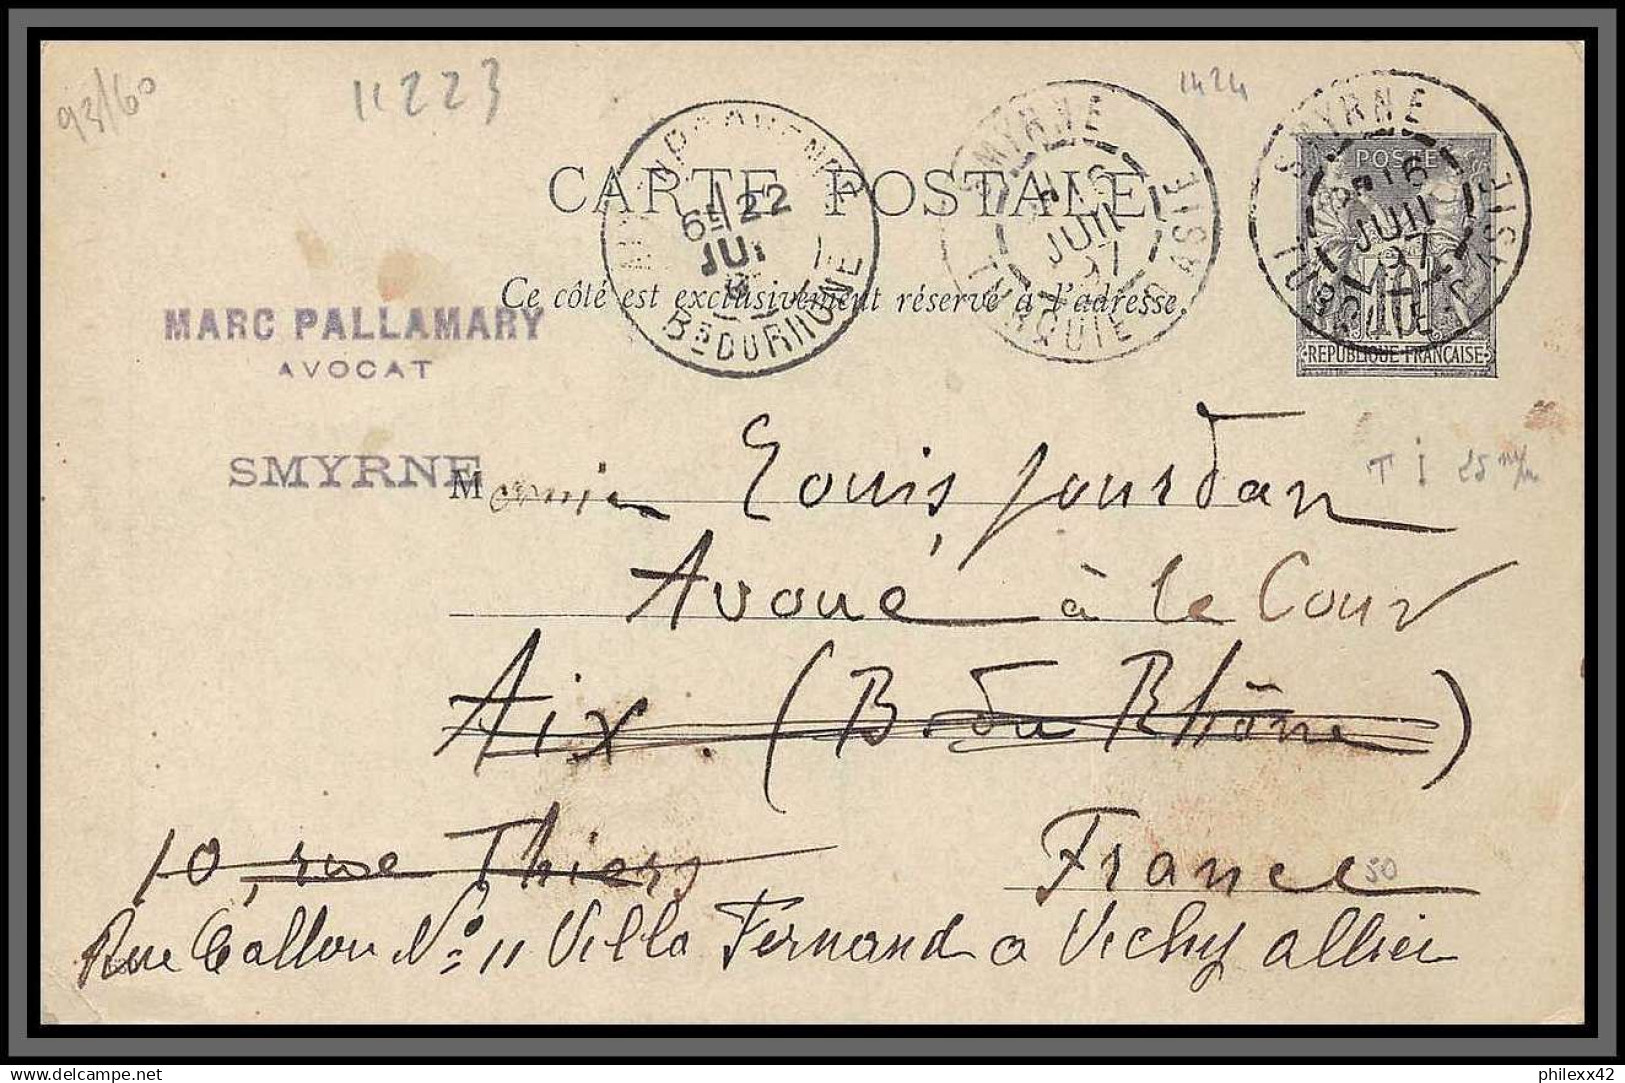 93/60
11223
1424
SMYRNE
TURQUIE D'ASIE
16
JUIL
97
SMYRNE
TURQUIE D'ASIE
16
JUIL
97
6E/22
JUIL
Bes DU RHONE
POSTE
10
REPUBLIQUE FRANCAISE
CARTE POSTALE
Ce côté est exclusivement réservé à l'adresse.
MARC PALLAMARY
AVOCAT
SMYRNE
Monsieur Louis Jourdan
Avoué à la Cour
Aix (B. du Rhône)
10, rue Thiers
France
50
Rue Callou No 11 Villa Fernand a Vichy allier
delcampe.net
philexx42